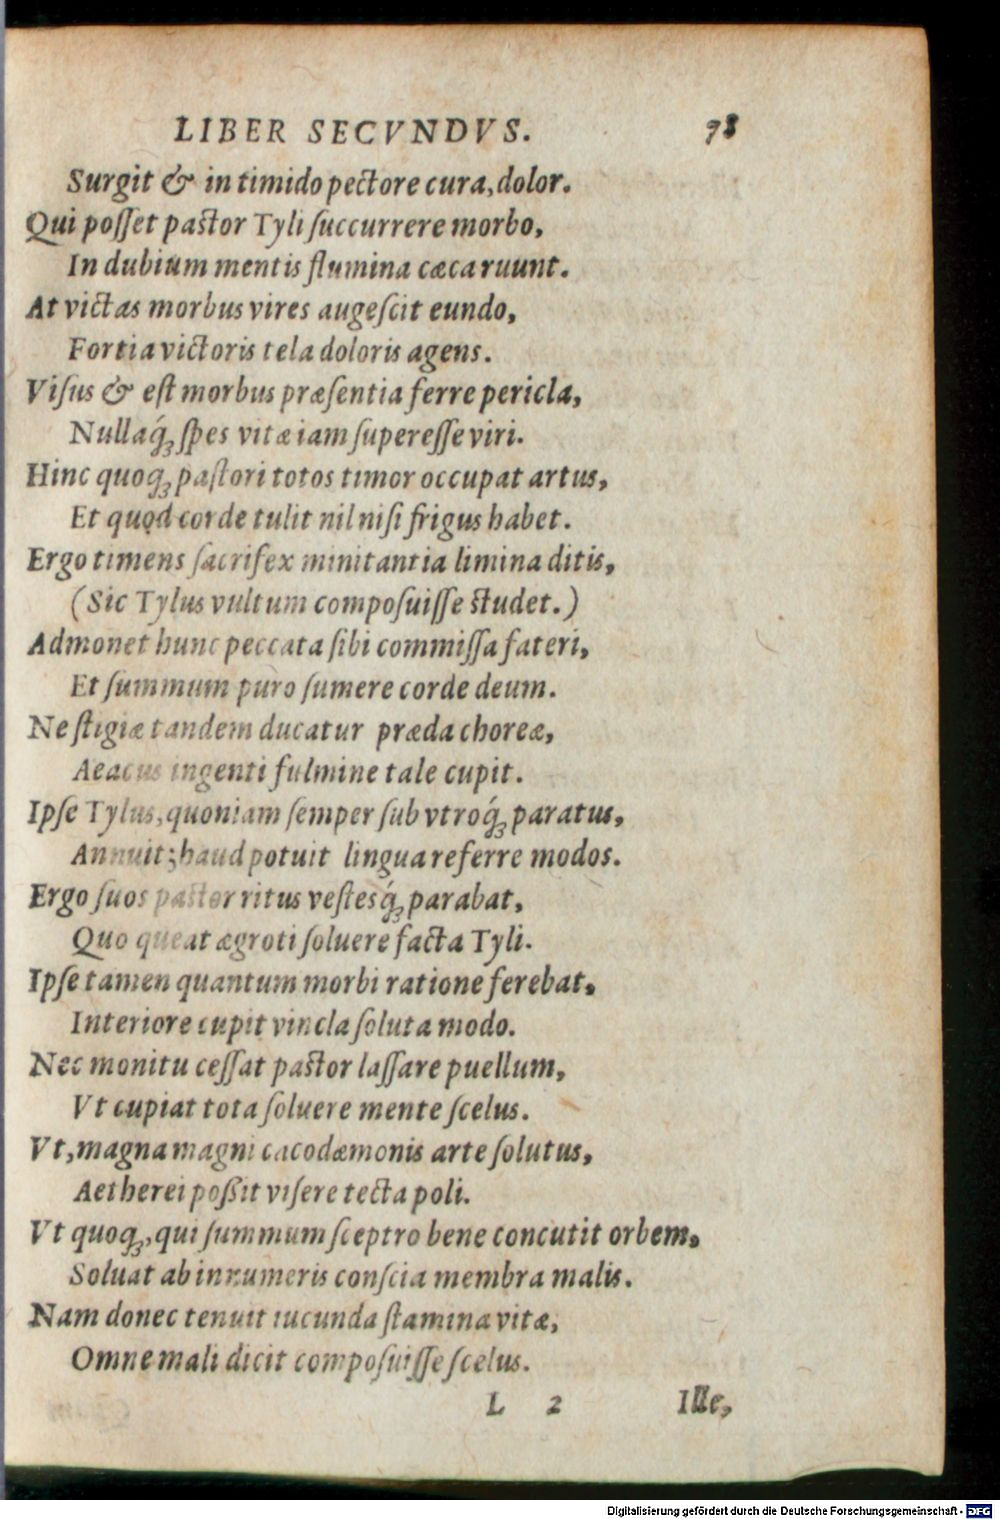 LIBER SECVNDVS. 78
Surgit & in timido pectore cura, dolor.
Qui poſſet paſtor Tyli ſuccurrere morbo,
In dubium mentis flumina cæca ruunt.
At victas morbus vires augeſcit eundo,
Fortia victoris tela doloris agens.
Viſus & eſt morbus præſentia ferre pericla,
Nullaq́ꝫ ſpes vitæ iam ſupereſſe viri.
Hinc quoqꝫ paſtori totos timor occupat artus,
Et quod corde tulit nil niſi frigus habet.
Ergo timens ſacrifex minitantia limina ditis,
(Sic Tylus vultum compoſuiſſe ſtudet.)
Admonet hunc peccata ſibi commiſſa fateri,
Et ſummum puro ſumere corde deum.
Ne ſtigiæ tandem ducatur præda choreæ,
Aeacus ingenti fulmine tale cupit.
Ipſe Tylus, quoniam ſemper ſub vtroq́ꝫ paratus,
Annuit; haud potuit lingua referre modos.
Ergo ſuos paſtor ritus veſtesq́ꝫ parabat,
Quo queat ægroti ſoluere facta Tyli.
Ipſe tamen quantum morbi ratione ferebat,
Interiore cupit vincla ſoluta modo.
Nec monitu ceſſat paſtor laſſare puellum,
Vt cupiat tota ſoluere mente ſcelus.
Vt, magna magni cacodæmonis arte ſolutus,
Aetherei poßit viſere tecta poli.
Vt quoqꝫ, qui ſummum ſceptro bene concutit orbem,
Soluat ab innumeris conſcia membra malis.
Nam donec tenuit iucunda ſtamina vitæ,
Omne mali dicit compoſuiſſe ſcelus.
L 2 Ille,
Digitalisierung gefördert durch die Deutsche Forschungsgemeinschaft - DFG